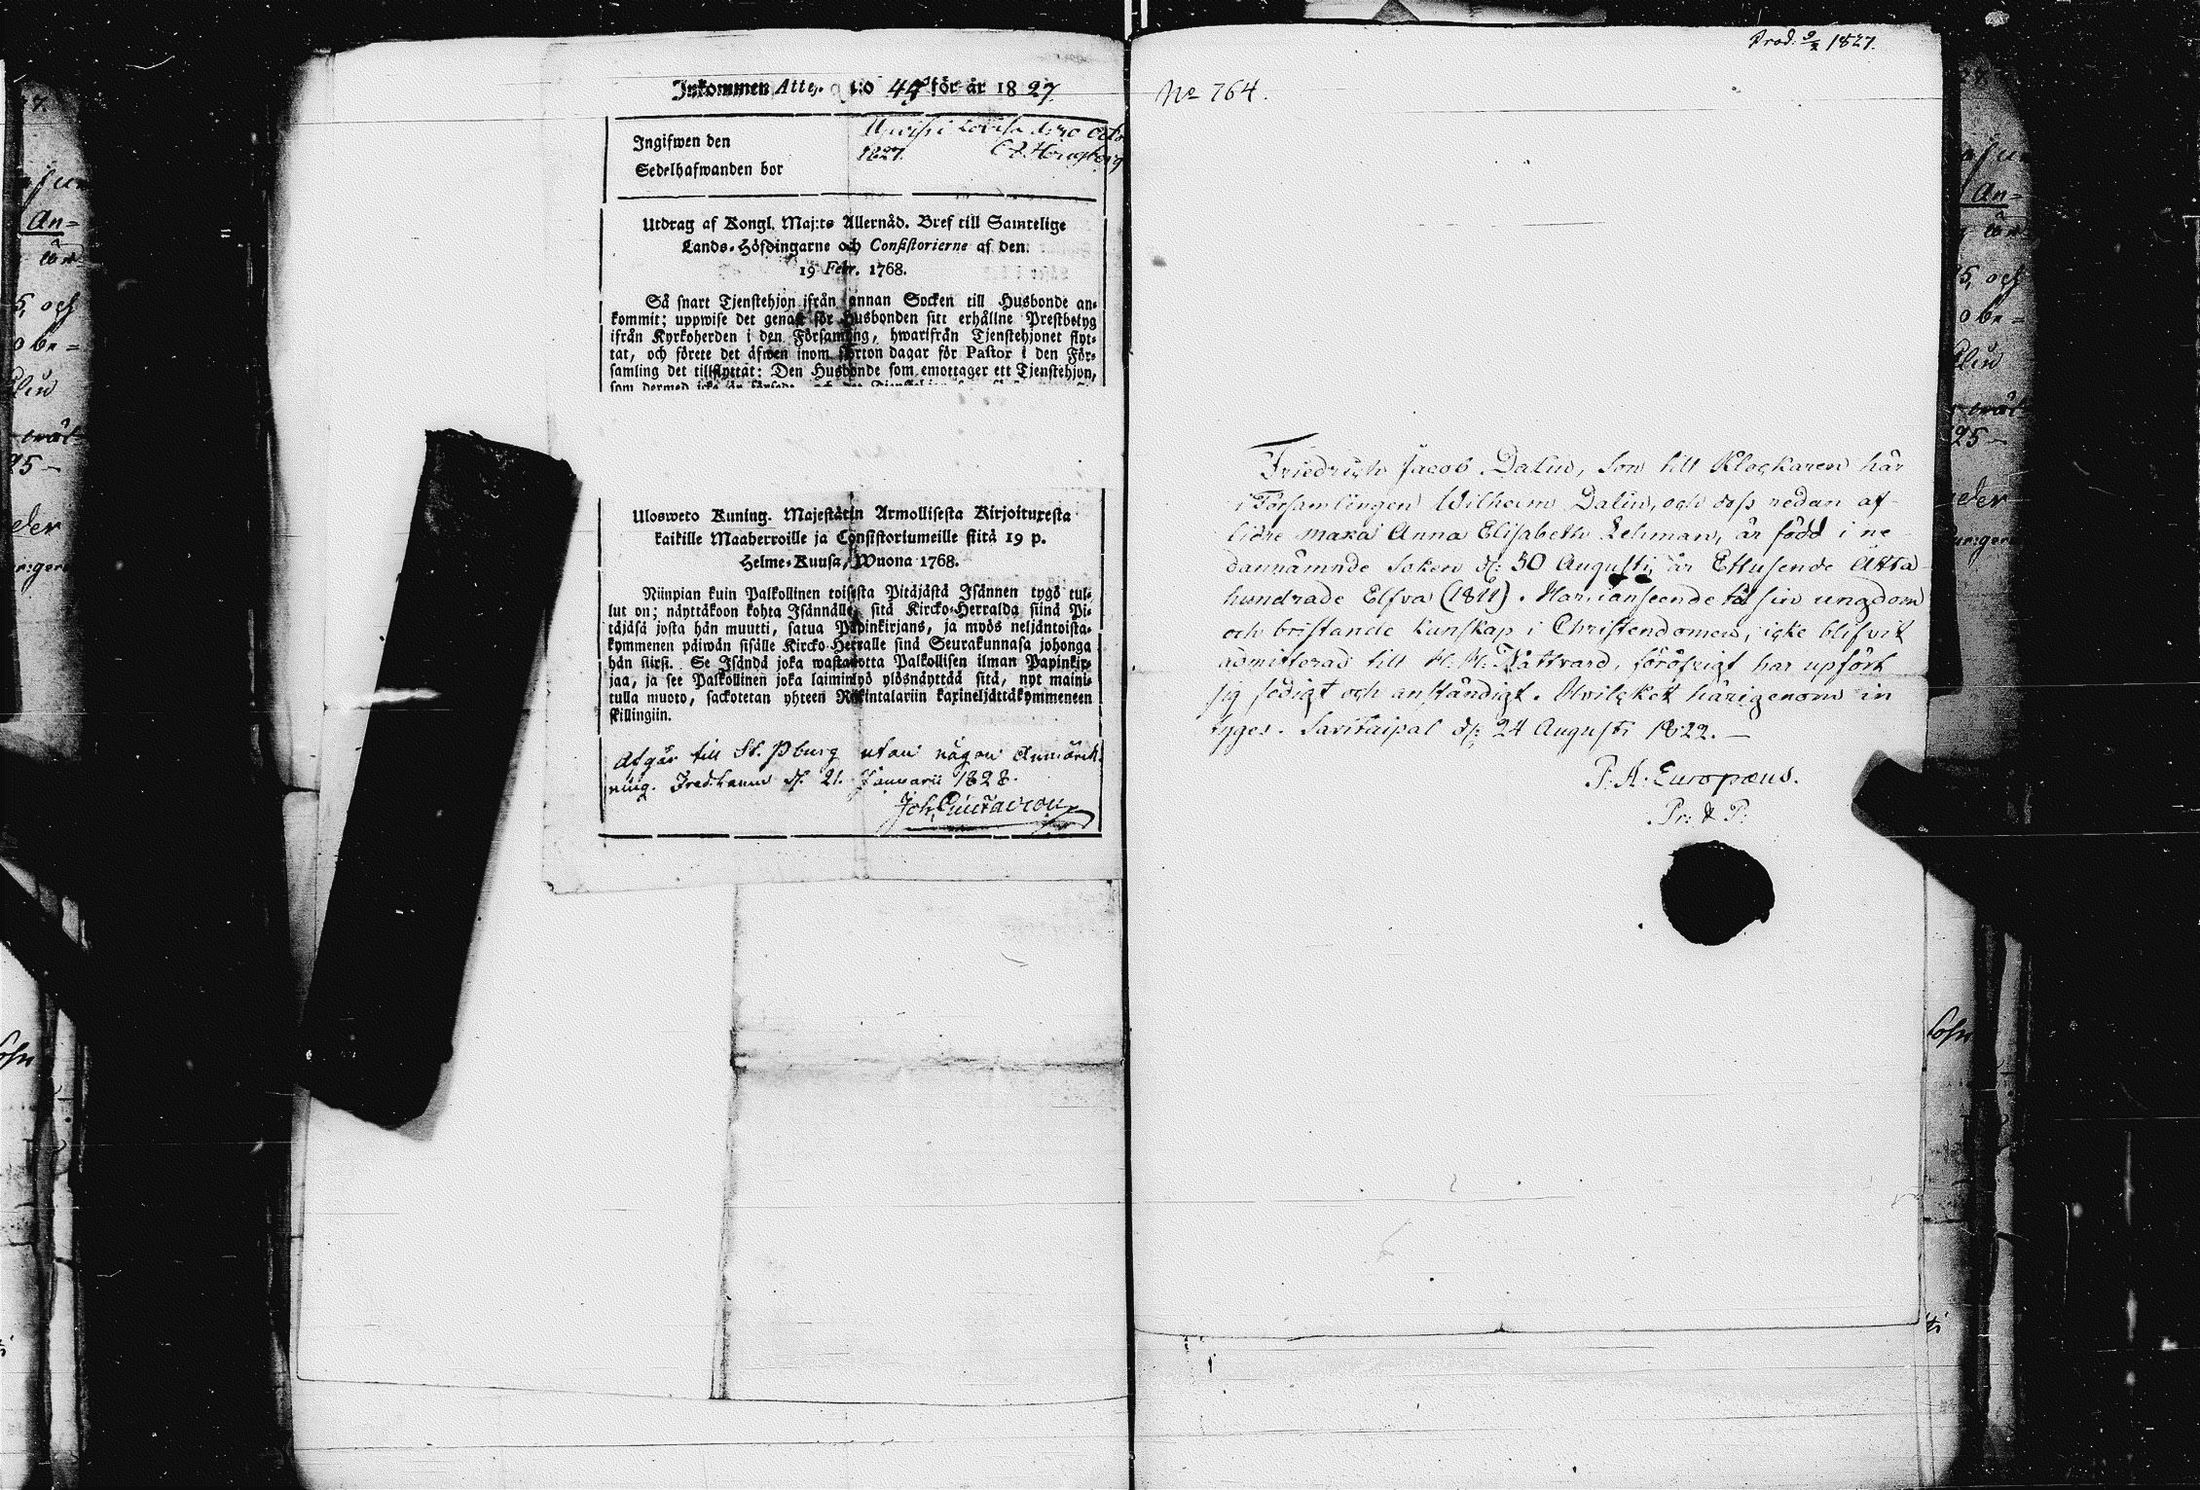 Inkommen Attest N:o 44 för år 1827
Ingifwen den
Sedelhafwanden bor
Uppvist i Lovisa d. 20 Octb.
1827.
Utdrag af Kongl. Maj:ts Allernåd. Bref till Samtelige
Lands-Höfdingarne och Consistorierne af den
19 Febr. 1768.
Så snart Tjenstehjon ifrån annan Socken till Husbonde an-
kommit; uppwise det genast för Husbonden sitt erhållne Prestbetyg
ifrån Kyrkoherden i den Församling, hwarifrån Tjenstehjonet flyt-
tat, och förete det äfwen inom fjorton dagar för Pastor i den För-
samling det tillflyttat: Den Husbonde som emottager ett Tjenstehjon,
som dermed icke är försedt
Ulosweto Kuning. Majestätin Armollisesta Kirjoituxesta
kaikille Maaherroille ja Consistoriumeille siitä 19 p.
Helme-Kuusa, Wuona 1768.
Niinpian kuin Palkollinen toisesta Pitäjästä Isännen tygö tul-
lut on; näyttäkoon kohta Isännälle sitä Kircko-Herralda siinä Pi-
täjäsä josta hän muutti, satua Papinkirjans, ja myös neljäntoista-
kymmenen päiwän sisälle Kircko-Herralle siinä Seurakunnasa johonga
hän siirsi. Se Isändä joka wastanotta Palkollisen ilman Papinkir-
jaa, ja see Palkollinen joka laiminlyö ylösnäyttää sitä, nyt maini-
tulla muoto, sackotetan yhteen Rikintalariin kaxineljättäkymmeneen
skillingiin.
Afgår till St. Pburg utan någon Anmärk-
ning. Fredr:hamn d. 21. Januarii 1828.
Joh. Gustavson
Prod. 9/2 1827.
No 764.
Friedrich Jacob Dalin, Son till Klockaren här
i Församlingen Wilhelm Dalin, och dess redan af-
lidne maka Anna Elisabeth Lehman, är född i ne-
dannämnde Soken d. 30 Augusti, år Ettusende Åtta
hundrade Elfva (1811). Har i anseende till sin ungdom
och bristande kunskap i Christendomen, icke blifvit
admitterad till H. H. Nattvard, föröfrigt har upfört
sig sedigt och anständigt. Hvilcket härigenom in
tyges. Savitaipal d. 24 Augusti 1822. —
P. A. Europæus.
Pr: & P: